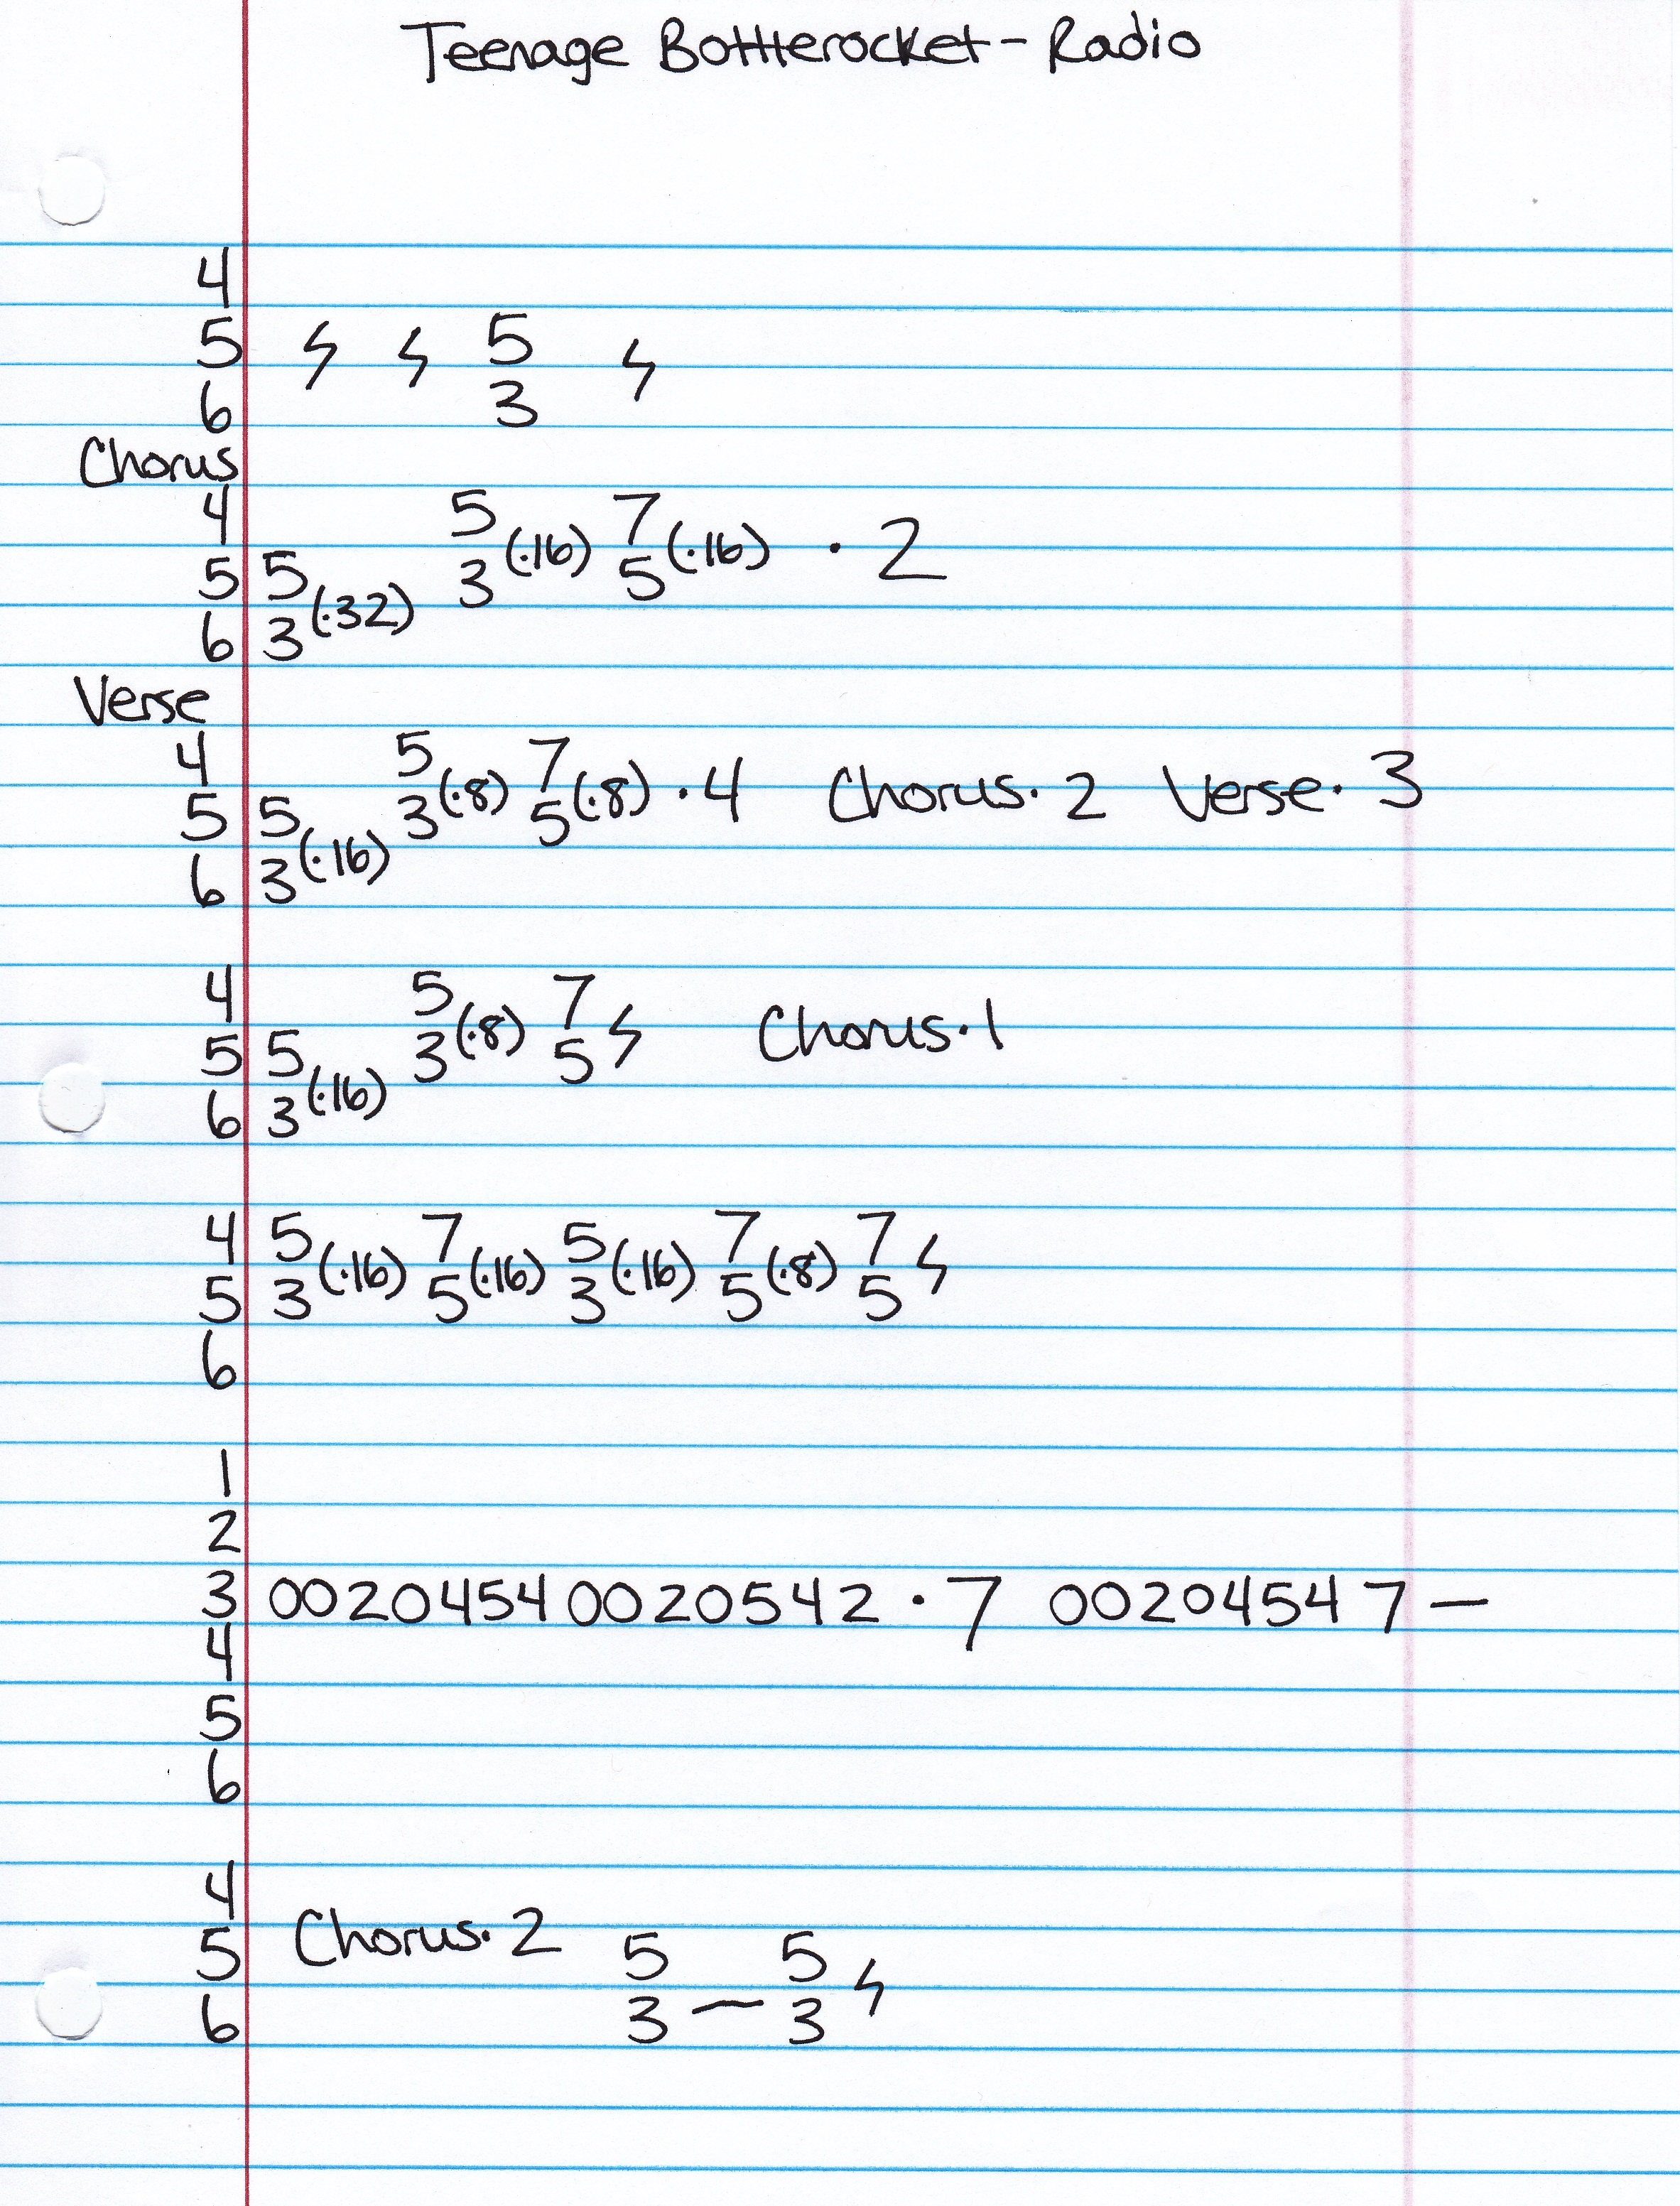 Teenage Bottlerocket - Radio
4
5 ϟ ϟ 5 ϟ
6 3
Chorus
4 5 (·16) 7 (·16) · 2
5 5 (·32) 3 5
6 3
Verse
4 5 (·8) 7 (·8) · 4 Chorus · 2 Verse · 3
5 5 (·16) 3 5
6 3
4 5 (·8) 7 ϟ Chorus · 1
5 5 (·16) 3 5
6 3
4 5 (·16) 7 (·16) 5 (·16) 7 (·8) 7 ϟ
5 3 5 3 5 5
6
1
2
3 00204540020542 · 7 00204547 —
4
5
6
4
5 Chorus · 2 5 5 ϟ
6 3 — 3